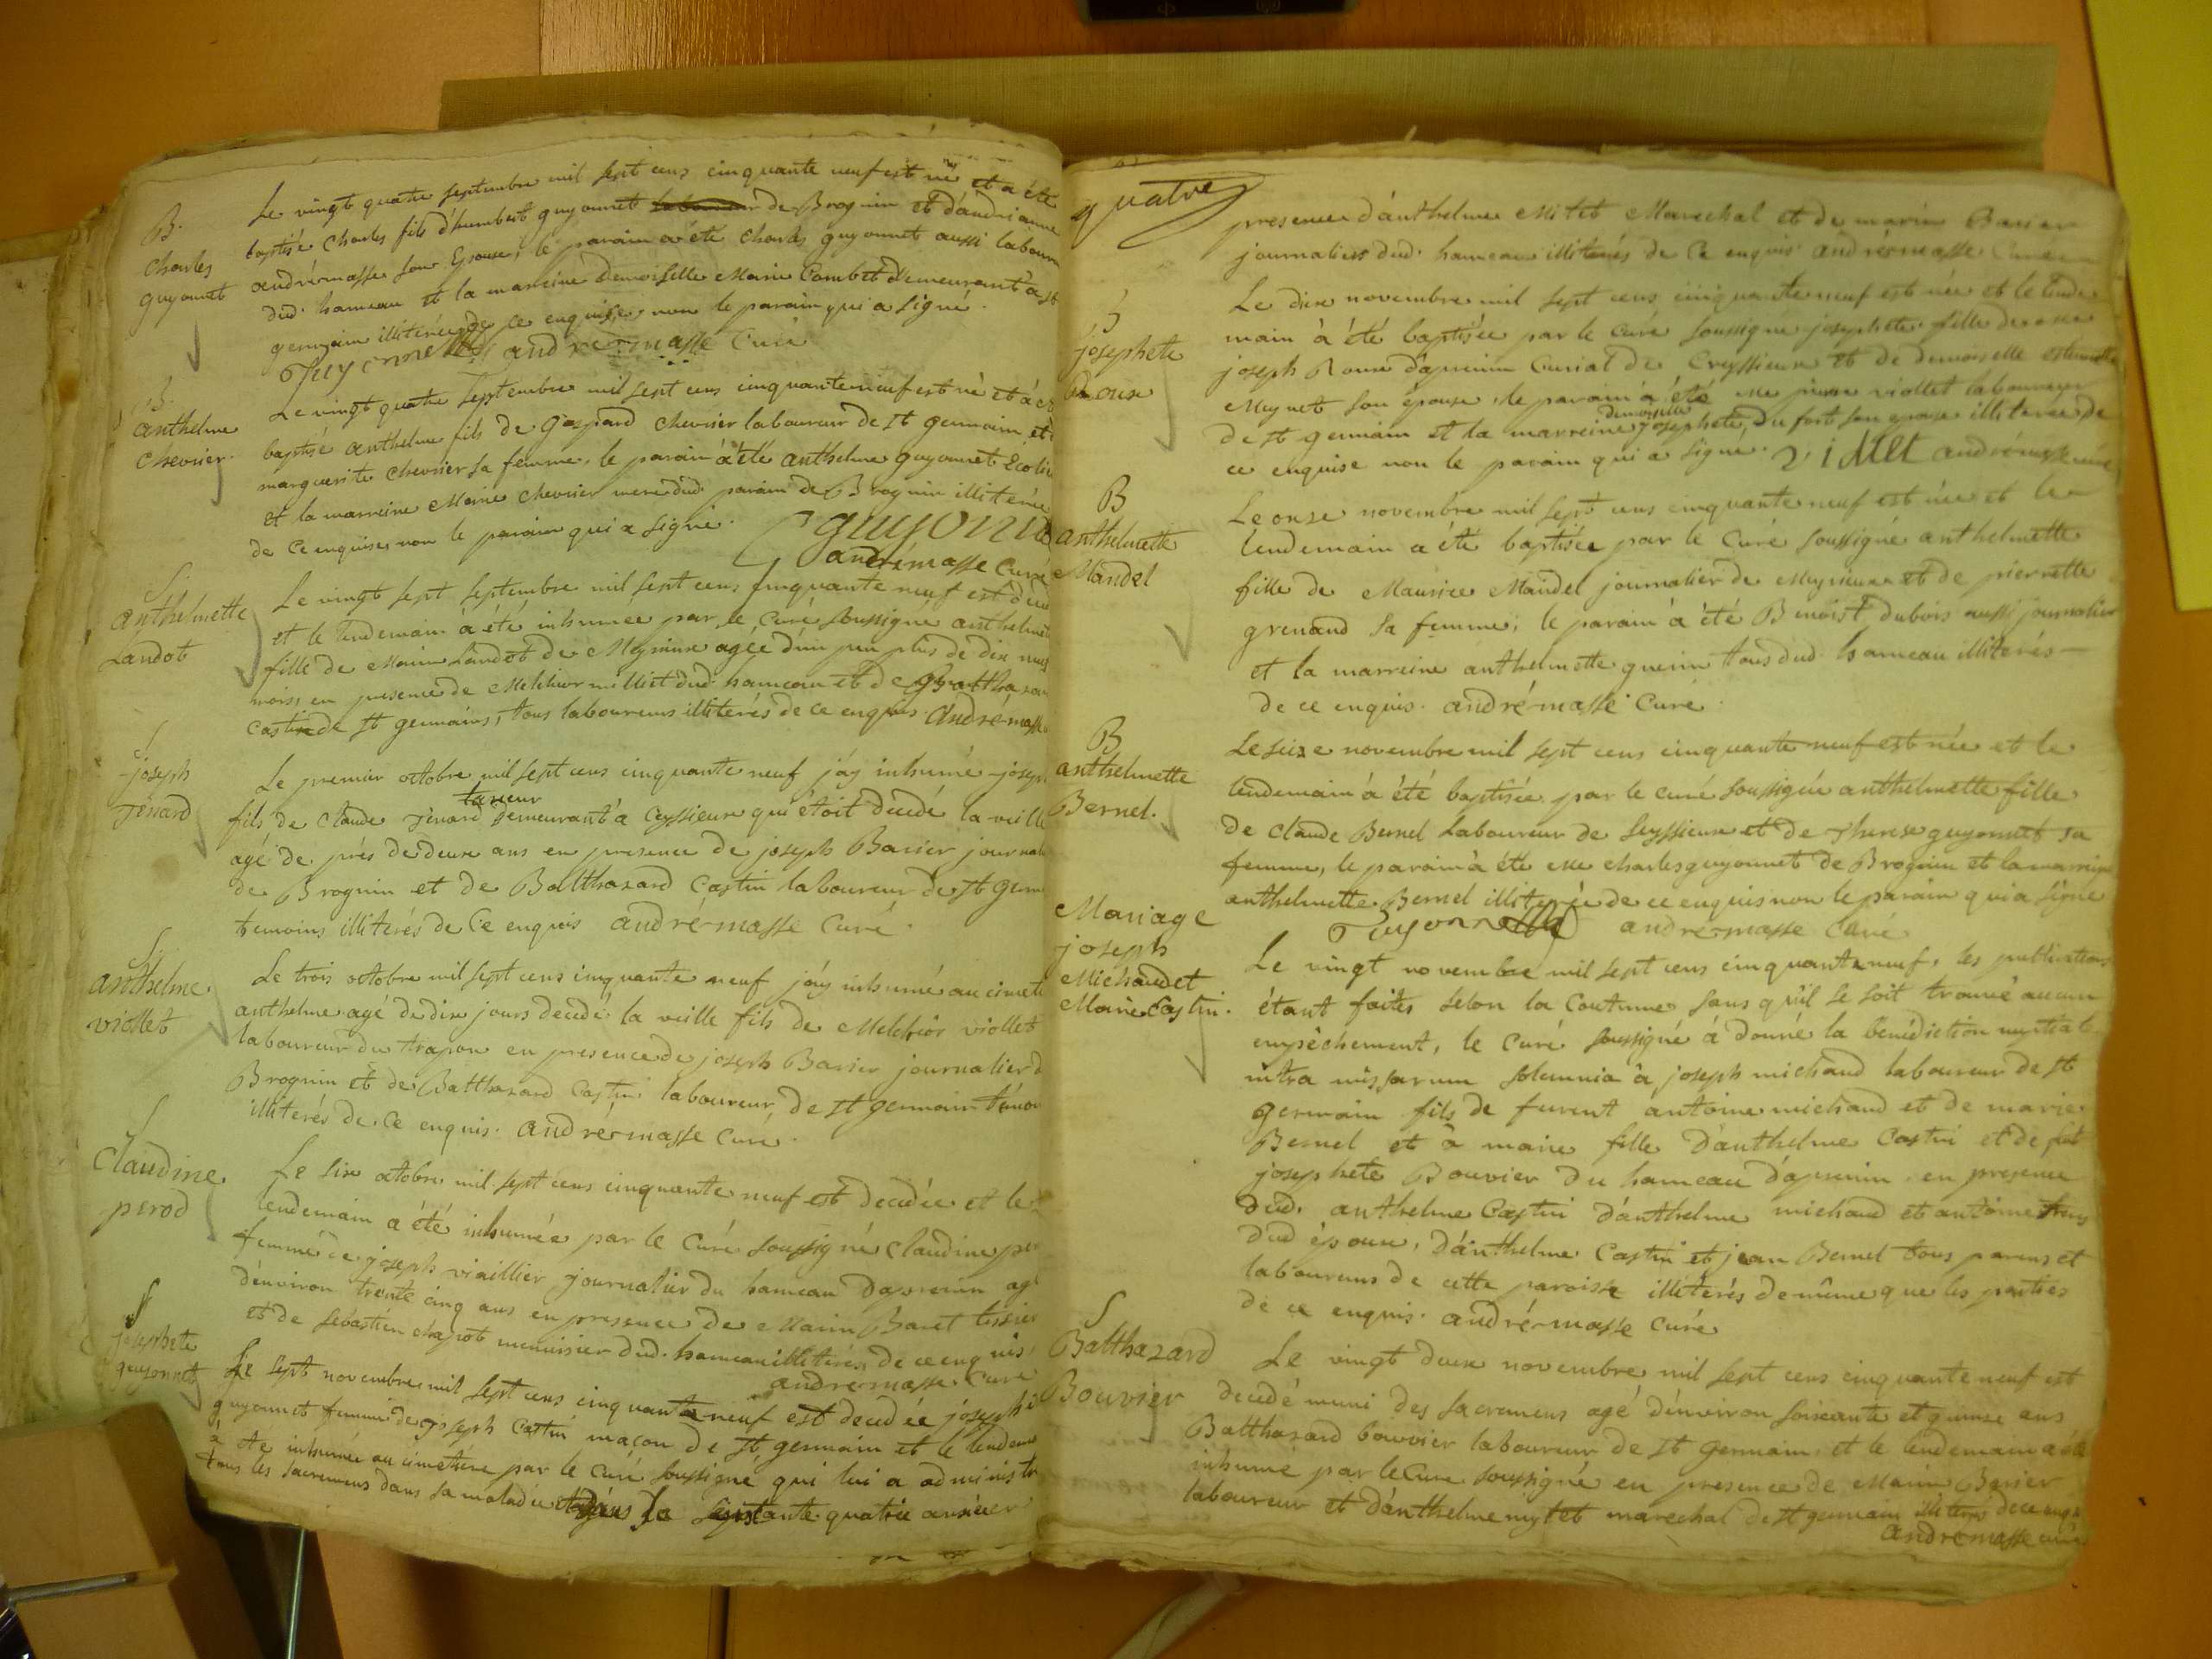 B.
Charles
guyonnet
Le vingt quatre septembre mil sept cens cinquante neuf est né et a été
baptisé Charles fils d'humbert guyonnet de Brognin et d'andrianne
andrémasse son Epouse, le parain a été Charles guyonnet aussi labour
dud. hameau et la mareine demoiselle Marie Combet demeurant à st
germain illiterée de ce enquise, non le parain qui a signé.
Guyonnet andrémasse Curé
B.
anthelme
Chevrier.
Le vingt quatre septembre mil sept cens cinquante neuf est né et à ét
baptisé anthelme fils de gaspard Chevrier laboureur de st germain et
marguerite Chevrier sa femme, le parain à été anthelme guyonnet Ecolie
et la marreine Marie Chevrier mere dud. parain de Brognin illiterée
de Ce enquise, non le parain qui a signé. guyonne
andrémasse Curé
S
anthelmette
Landot
Le vingt sept septembre mil sept cens cinquante neuf est deced
et le lendemain à été inhumée par le Curé soussigné anthelmet
fille de Marin Landot de Meynieux agée d'un peu plus de dix neuf
mois, en presence de Melchior millet dud. hameau et de Balthazar
Castin de st germain, tous laboureurs illiterés de ce enquis. andrémasse
S
joseph
Jénard
Le premier octobre mil sept cens cinquante neuf j'ay inhumé joseph
fils de Claude Jénard demeurant à Ceyssieux qui étoit decedé la veille
agé de près de deux ans en presence de joseph Barier journal
de Brognin et de Balthazard Castin laboureur de st germ
temoins illiterés de Ce enquis andrémasse Curé.
S
anthelme
viollet
Le trois octobre mil sept cens cinquante neuf j'ay inhumé au cimeti
anthelme agé de dix jours decedé la veille fils de Melchior viollet
laboureur du trapon en presence de joseph Barier journalier d
Brognin et de Balthazard Castin laboureur de st germain temoi
illiterés de Ce enquis. andrémasse Curé.
S
Claudine
perod
Le six octobre mil sept cens cinquante neuf est decedée et le
lendemain a été inhumée par le Curé soussigné Claudine per
femme de joseph viaillier journalier du hameau d'apremin ag
d'environ trente cinq ans en presence de Marin Baret tissier
et de sebastien Chapot menuisier dud. hameau illiterés, de ce enquis,
andrémasse Curé
S
josephete
guyonnet
Le sept novembre mil sept cens cinquante neuf est decedée joseph
guyonnet femme de joseph Castin maçon de st germain et le lendem
à été inhumée au cimetiere par le Curé soussigné qui lui a administr
tous les sacremens dans sa maladie dans sa septante quatrie année en
quatre
presence d'anthelme Mitet Marechal et de marin Barier
journaliers dud. hameau illiterés de Ce enquis andrémasse Curé
josephete
Roux
Le dix novembre mil sept cens cinquante neuf est née et le lende
main à été baptisée par le Curé soussigné josephete fille de
joseph Roux d'apremin Curial de Ceyssieux et de demoiselle
Meynet son epouse, le parain à été me viollet laboureur
demoiselle
de st germain et la marreine josephete du fort son epouse illiterée de
ce enquise non le parain qui a signé. viollet andrémasse curé
B
anthelmette
Mandel
Le onze novembre mil sept cens cinquante neuf est née et le
lendemain a été baptisée par le Curé soussigné anthelmette
fille de Maurice Mandel journalier de Meynieux et de pierrette
grenand sa femme; le parain à été Benoist Dubois aussi journalier
et la marreine anthelmette guerin tous dud. hameau illiterés
de ce enquis. andrémasse Curé.
B
anthelmette
Bernel.
Le seize novembre mil sept cens cinquante neuf est née et le
lendemain à été baptisée par le curé soussigné anthelmette fille
de Claude Bernel laboureur de Seyssieux et de Therese guyonnet sa
femme, le parain a été me charles guyonnet de Brognin et la marreine
anthelmette Bernel illiterée de ce enquis non le parain qui a signé
Guyonnet andrémasse Curé
Mariage
joseph
Michaud et
Marie Castin.
Le vingt novembre mil sept cens cinquante neuf, les publications
étant faites selon la Coutume sans qu'il se soit trouvé aucun
empêchement, le Curé soussigné à donné la benédiction nuptiale
intra missarum solemnia à joseph michaud laboureur de st
germain fils de furent antoine michaud et de marie
Bernel et à marie fille d'anthelme Castin et de fut
josephete Bouvier du hameau d'apremin, en presence
dud. anthelme Castin d'anthelme michaud et antoine
dud époux, d'anthelme Castin et jean Bernel tous parens et
laboureurs de cette paroisse illiterés de même que les parties
de ce enquis. andrémasse Curé
S
Balthazard
Bouvier
Le vingt deux novembre mil sept cens cinquante neuf est
decedé muni des sacremens agé d'environ soixante et quinze ans
Balthazard bouvier laboureur de st germain, et le lendemain a été
inhumé par le Curé soussigné en presence de Marin Barier
laboureur et d'anthelme mytet marechal de st germain illiterés de ce enquis
andrémasse curé